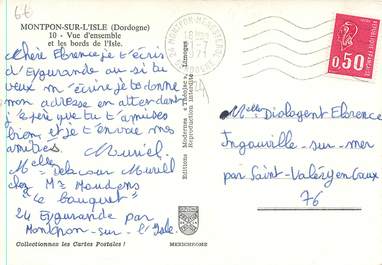 66
MONTPON-SUR-L'ISLE (Dordogne)
10 - Vue d'ensemble
et les bords de l'Isle.
Chère Florence je t'écris
d'Eygurande au si tu
veux m'écrire je te donne
mon adresse en attendant
j'espère que tu t'amuses
bien, et je t'envoie mes
amitiés Muriel.
Melle Delacour Muriel
chez Mr Moudens
"le bouquet"
24 Eygurande par
Montpon-sur-l'Isle.
Collectionnez les Cartes Postales !
Editions Modernes « Théojac », Limoges
Reproduction interdite
MEXICHROME
24 MONTPON-MENESTEROL
DORDOGNE
18H
REPUBLIQUE FRANÇAISE
0,50
24
Melle Diologent Florence
Ingouville-sur-mer
par Saint-Valéry en Caux
76